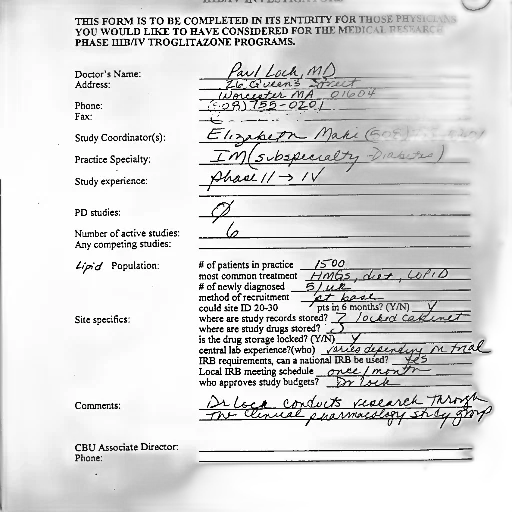 THIS FORM IS TO BE COMPLETED IN ITS ENTIRITY FOR THOSE PHYSICIANS
YOU WOULD LIKE TO HAVE CONSIDERED FOR THE MEDICAL RESEARCH
PHASE IIIB/IV TROGLITAZONE PROGRAMS.
Doctor's Name: Paul Lock, MD
Address: 26 Queens Street
Worcester MA 01604
Phone: (508) 755-0201
Fax:
Study Coordinator(s): Elizabeth Maki (508)
Practice Specialty: IM (subspecialty Diabetes)
Study experience: Phase II → IV
PD studies: Ø
Number of active studies: 6
Any competing studies:
Lipid Population: # of patients in practice 1500
most common treatment HMGs, diet, LOPID
# of newly diagnosed 5/wk
method of recruitment pt base
could site ID 20-30 pts in 6 months? (Y/N) Y
Site specifics: where are study records stored? locked cabinet
where are study drugs stored?
is the drug storage locked? (Y/N) Y
central lab experience?(who) varies depending on trial
IRB requirements, can a national IRB be used? yes
Local IRB meeting schedule once/month
who approves study budgets? Dr Lock
Comments: Dr Lock conducts research through
the clinical pharmacology study group
CBU Associate Director:
Phone: